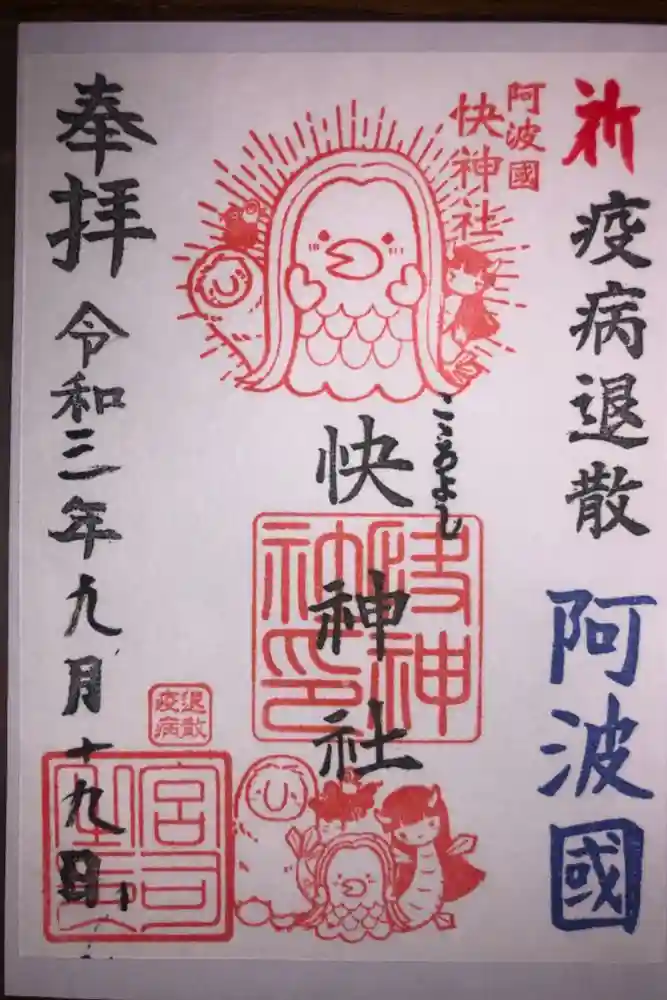 祈疫病退散
阿波國
阿波國
快神社
こゝろよし
快神社
快神社印
退散
疫病
奉拝
令和三年九月十九日
宮司